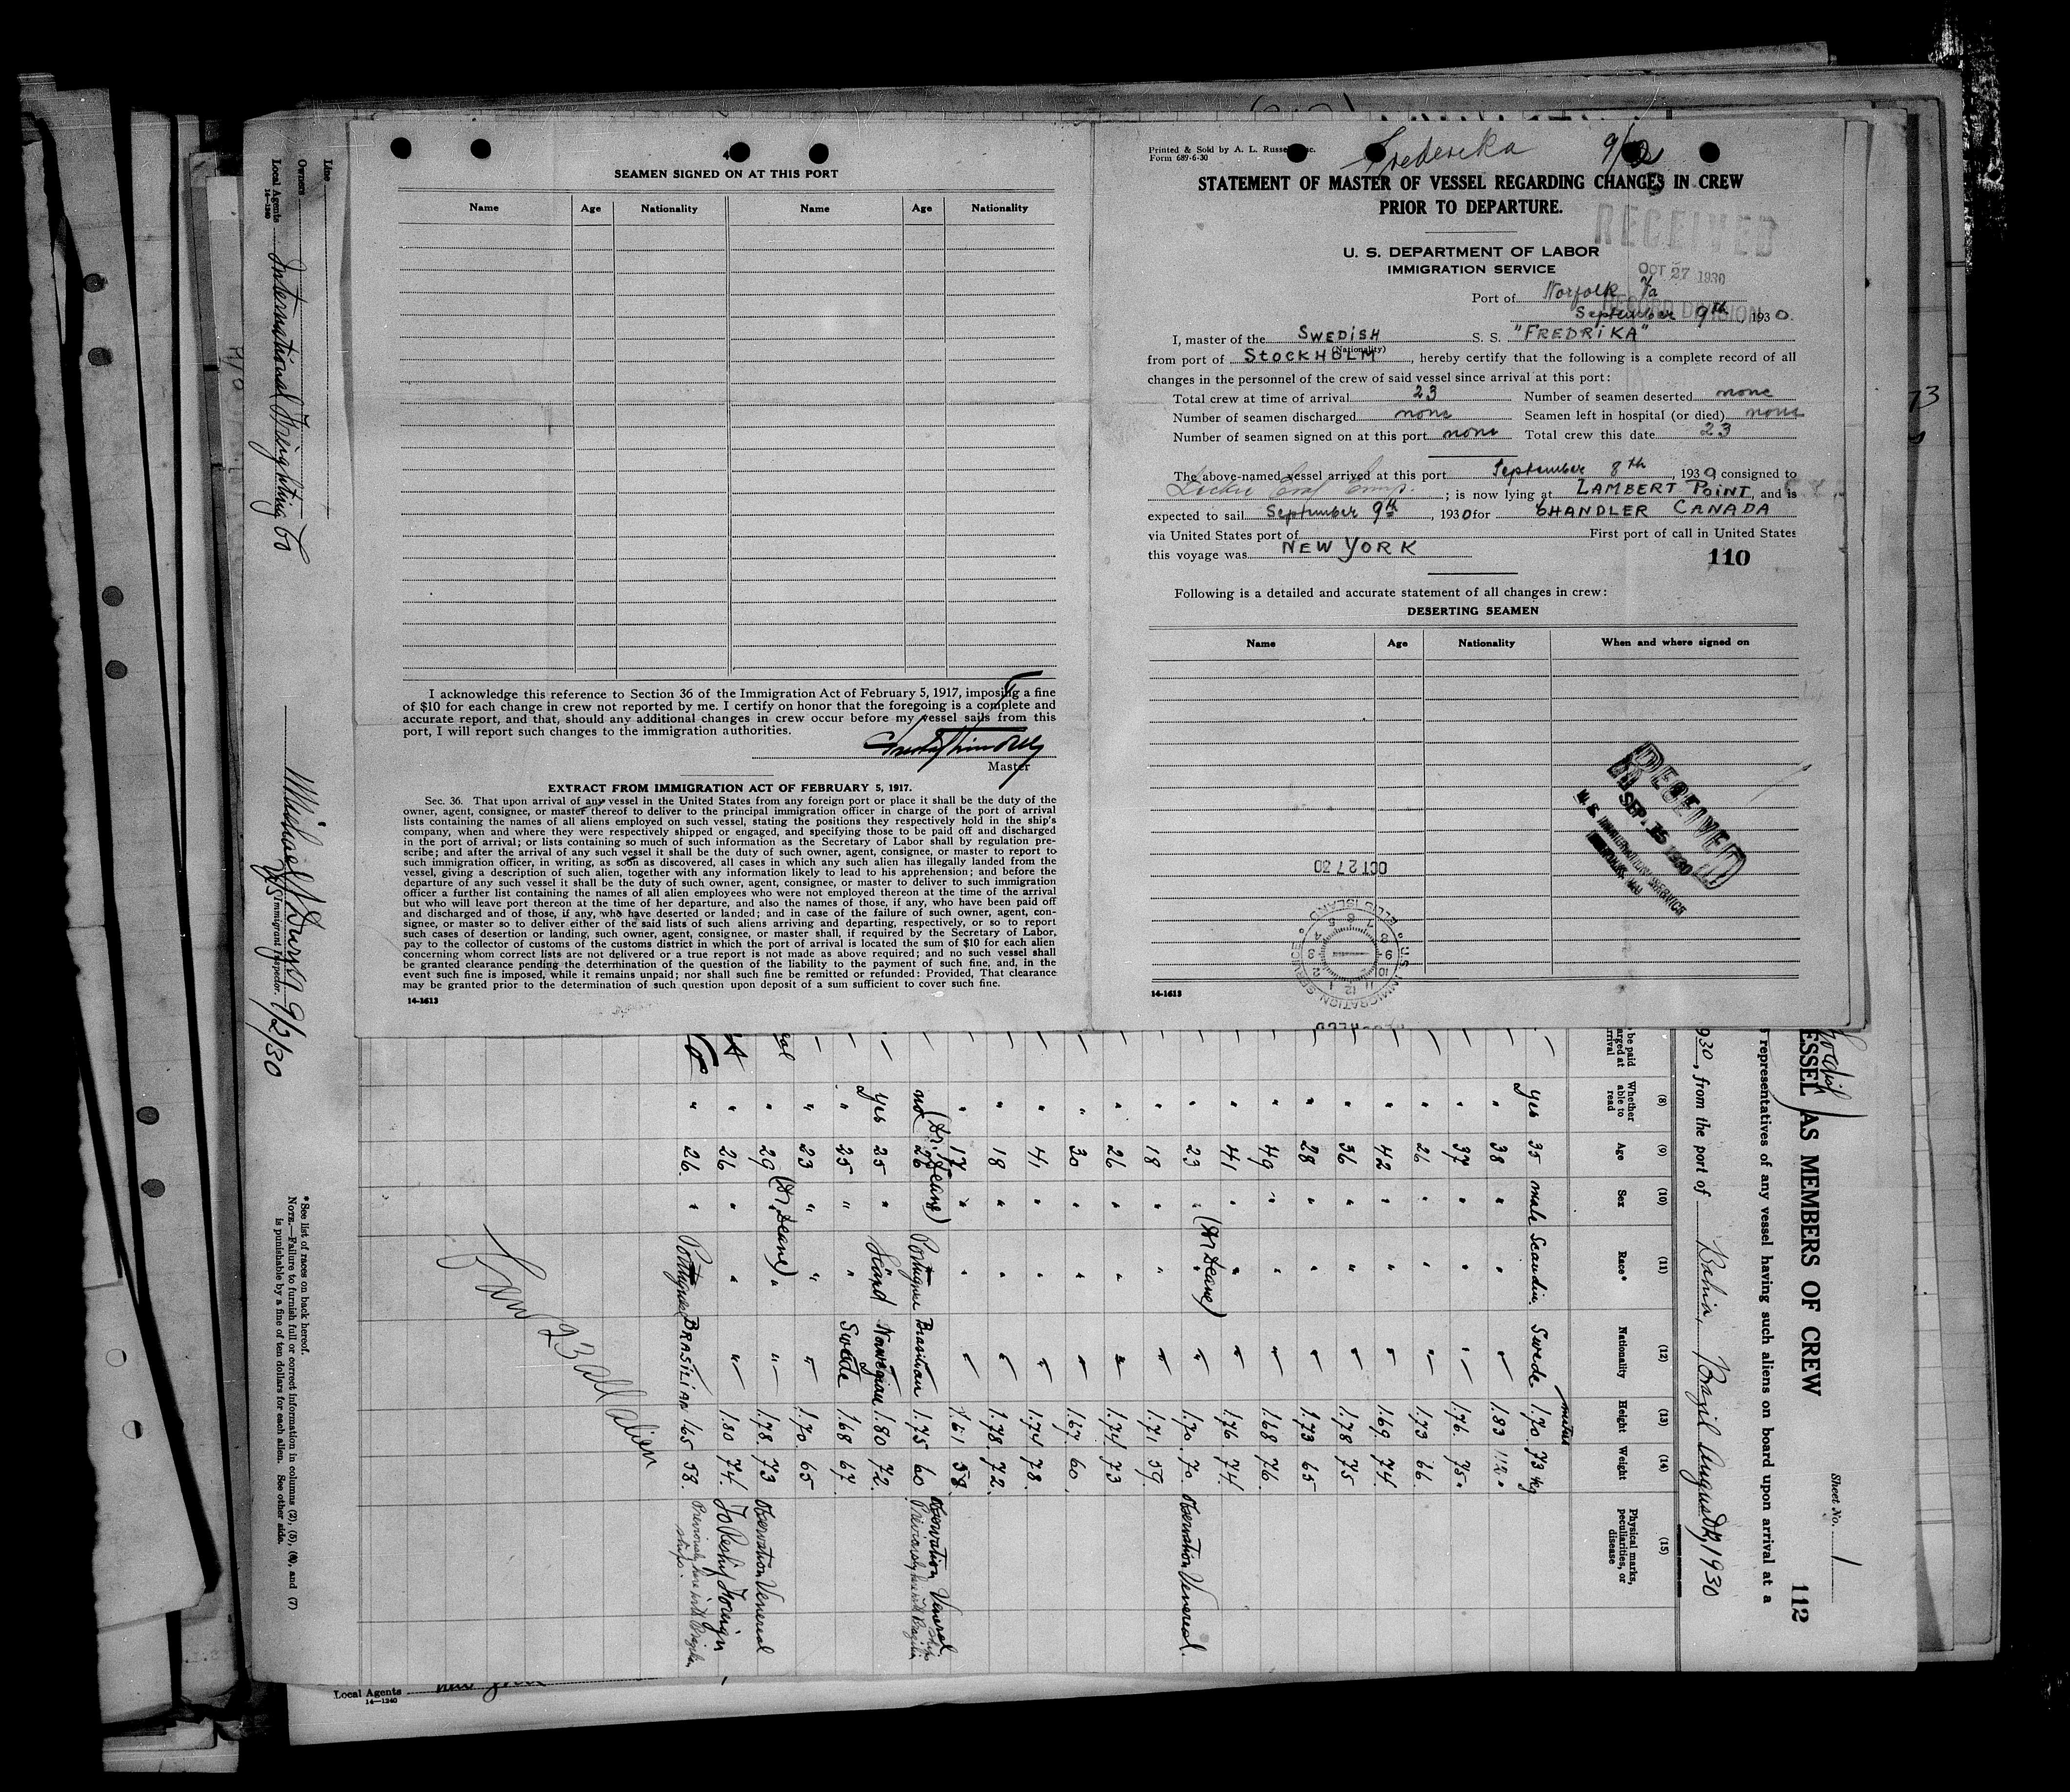 4
SEAMEN SIGNED ON AT THIS PORT
Name Age Nationality Name Age Nationality
I acknowledge this reference to Section 36 of the Immigration Act of February 5, 1917, imposing a fine
of $10 for each change in crew not reported by me. I certify on honor that the foregoing is a complete and
accurate report, and that, should any additional changes in crew occur before my vessel sails from this
port, I will report such changes to the immigration authorities.
Master
EXTRACT FROM IMMIGRATION ACT OF FEBRUARY 5, 1917.
Sec. 36. That upon arrival of any vessel in the United States from any foreign port or place it shall be the duty of the
owner, agent, consignee, or master thereof to deliver to the principal immigration officer in charge of the port of arrival
lists containing the names of all aliens employed on such vessel, stating the positions they respectively hold in the ship's
company, when and where they were respectively shipped or engaged, and specifying those to be paid off and discharged
in the port of arrival; or lists containing so much of such information as the Secretary of Labor shall by regulation pre-
scribe; and after the arrival of any such vessel it shall be the duty of such owner, agent, consignee, or master to report to
such immigration officer, in writing, as soon as discovered, all cases in which any such alien has illegally landed from the
vessel, giving a description of such alien, together with any information likely to lead to his apprehension; and before the
departure of any such vessel it shall be the duty of such owner, agent, consignee, or master to deliver to such immigration
officer a further list containing the names of all alien employees who were not employed thereon at the time of the arrival
but who will leave port thereon at the time of her departure, and also the names of those, if any, who have been paid off
and discharged and of those, if any, who have deserted or landed; and in case of the failure of such owner, agent, con-
signee, or master so to deliver either of the said lists of such aliens arriving and departing, respectively, or so to report
such cases of desertion or landing, such owner, agent, consignee, or master shall, if required by the Secretary of Labor,
pay to the collector of customs of the customs district in which the port of arrival is located the sum of $10 for each alien
concerning whom correct lists are not delivered or a true report is not made as above required; and no such vessel shall
be granted clearance pending the determination of the question of the liability to the payment of such fine, and, in the
event such fine is imposed, while it remains unpaid; nor shall such fine be remitted or refunded: Provided, That clearance
may be granted prior to the determination of such question upon deposit of a sum sufficient to cover such fine.
14-1613
Printed & Sold by A. L. Russell Inc.
Form 689-6-30
Frederika 9/2
STATEMENT OF MASTER OF VESSEL REGARDING CHANGES IN CREW
PRIOR TO DEPARTURE.
RECEIVED
OCT 27 1930
RECORD DIVISION
U. S. DEPARTMENT OF LABOR
IMMIGRATION SERVICE
Port of Norfolk Va
September 9th, 1930.
I, master of the SWEDISH S. S. "FREDRIKA"
(Nationality)
from port of STOCKHOLM, hereby certify that the following is a complete record of all
changes in the personnel of the crew of said vessel since arrival at this port:
Total crew at time of arrival 23 Number of seamen deserted none
Number of seamen discharged none Seamen left in hospital (or died) none
Number of seamen signed on at this port none Total crew this date 23
The above-named vessel arrived at this port September 8th, 1930, consigned to
; is now lying at LAMBERT POINT, and is
expected to sail September 9th, 1930 for CHANDLER CANADA
via United States port of First port of call in United States
this voyage was NEW YORK
110
Following is a detailed and accurate statement of all changes in crew:
DESERTING SEAMEN
Name Age Nationality When and where signed on
RECEIVED
SEP. 15 1930
U. S. IMMIGRATION SERVICE
OCT 27 30
U.S. IMMIGRATION SERVICE
ELLIS ISLAND
14-1613
Line
Owners
Local Agents International Freighting Co
14-1240
Immigrant Inspector. 9/2/30
*See list of races on back hereof.
NOTE.—Failure to furnish full or correct information in columns (2), (5), (6), and (7)
is punishable by a fine of ten dollars for each alien. See other side.
Sheet No. 1
112
ESSEL AS MEMBERS OF CREW
representatives of any vessel having such aliens on board upon arrival at a
930, from the port of Bahia, Brazil August 1930
(8) (9) (10) (11) (12) (13) (14) (15)
Whether able to read Age Sex Race* Nationality Height Weight Physical marks, peculiarities, or disease
metres
yes 35 male Scandin. Swede 1.70 73 kg
" 38 " " " 1.83
" 37 " " " 1.76 75
" 26 " " " 1.73 66
" 42 " " " 1.69 74
" 36 " " " 1.78 75
" 28 " " " 1.73 65
" 49 " " " 1.68 76
" 41 " " " 1.76 74
" 23 " (Dr Deane) " 1.70 70 Observation Venereal
" 18 " " " 1.71 59
" 26 " " " 1.74 73
" 30 " " " 1.67 60
" 41 " " " 1.74 78
" 18 " " " 1.78 72
" 17 " " " 1.61 58
no 26 (Dr. Deane) Portuguese Brasilian 1.75 60 Observation Venereal
yes 25 " Scand Norwegian 1.80 72
" 25 " " Swede 1.68 67
" 23 " " " 1.70 65
" 29 (Dr. Deane) " " 1.78 73 Observation Venereal
" 26 " " " 1.80 74 To Reship Foreign
" 26 " Portuguese BRASILIAN 1.65 58 Previously here with Brazilian ships.
23 all alien
Local Agents
14-1240